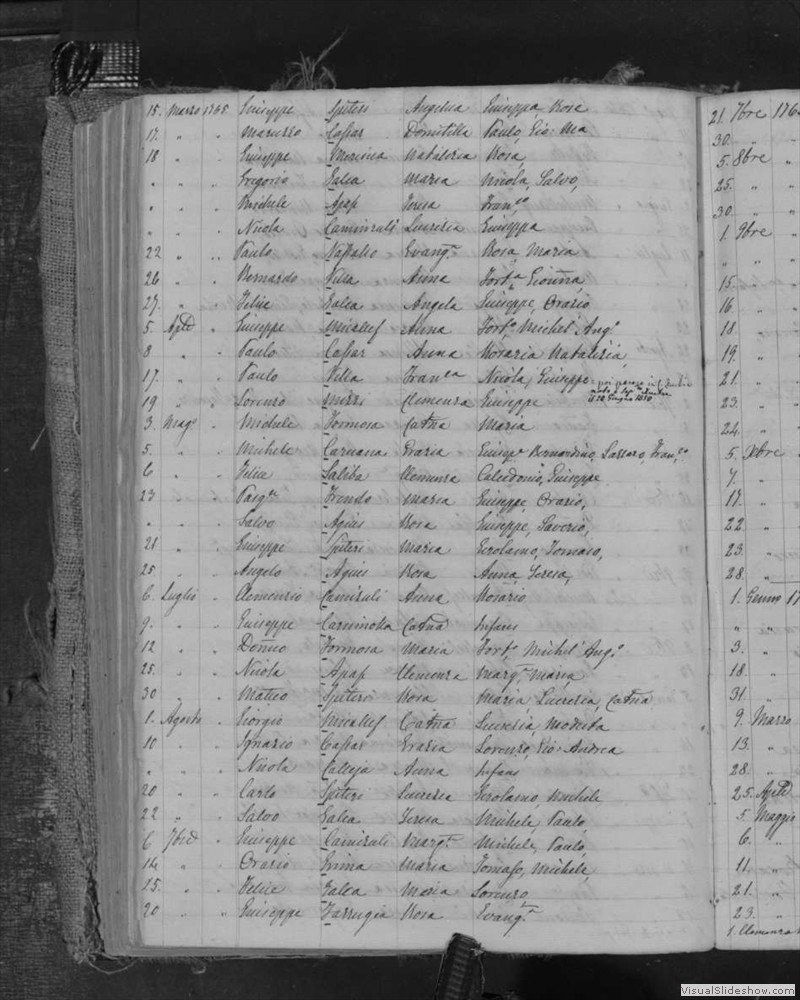 15. Marzo 1765. Giuseppe Spiteri Angelica Giuseppa Rosa
17. " " Maruzzo Cassar Domitilla Paulo, Gio: Ma
18 " " Giuseppe Messina Natalizia Rosa,
" " " Gregorio Galea Maria Nicola, Salvo,
" " " Michele Apap Teresa Fran.co
" " " Nicola Camensuli Lucrezia Giuseppa
22 " " Paulo Vassallo Evang.ta Rosa, Maria
26 " " Bernardo Vella Anna Fort.a Gioanna
27. " " Felice Galea Angela Giuseppe, Orazio
5. Aple " Giuseppe Micallef Anna Fort.o Michel' Ang.o
8 " " Paulo Cassar Anna Horatia Natalizia,
17. " " Paulo Vella Fran.ca Nicola, Giuseppe
19 " " Lorenzo Mizzi Clemenza Giuseppe
il 28 Giugno 1850
3. Mago " Michele Formosa Catna Maria
5. " " Michele Caruana Grazia Giusep.e Bernardino, Lazzaro, Fran.co
6 " " Felice Saliba Clemenza Calcedonio, Giuseppe
23 " " Pasq.le Trendo Maria Giuseppe, Orazio,
" " " Salvo Agius Rosa Giuseppe, Saverio,
21 " " Giuseppe Spiteri Maria Girolamo, Tomaso,
25 " " Angelo Agius Rosa Anna, Teresa,
6. Luglio " Clemenzio Camisuli Anna Rosario
9. " " Giuseppe Carminotta Catna Infans
12 " " Domco Formosa Maria Fort.o Michel' Ang.o
25. " " Nicola Apap Clemenza Marg.ta Maria
30 " " Matteo Spiteri Rosa Maria Lucrezia, Catna
1. Agosto " Giorgio Micallef Catna Lucrezia, Modesta
10 " " Ignazio Cassar Grazia Lorenzo, Gio: Andrea
" " " Nicola Calleja Anna Infans
20 " " Carlo Spiteri Lucrezia Girolamo, Michele
22 " " Salvo Galea Teresa Michele, Paulo,
6 7bre " Giuseppe Camisuli Marg.ta Michele, Paulo,
14 " " Orazio Grima Maria Tomaso, Michele,
15. " " Felice Galea Maria Lorenzo
20 " " Giuseppe Farrugia Rosa Evang.ta
21. 7bre 176
30. " "
5. 8bre "
25. " "
30. " "
1. 9bre "
" "
15. "
16 "
18 "
19. "
21. "
23. "
24. "
5. Xbre "
7. "
17. "
22. "
23. "
28. "
1. Genn 17
" "
3. "
18. "
31. "
9. Marzo
13. "
28. "
25. Aple
5 Maggio
6. "
11. "
21. "
23. "
1. Clemenza
VisualSlideshow.com